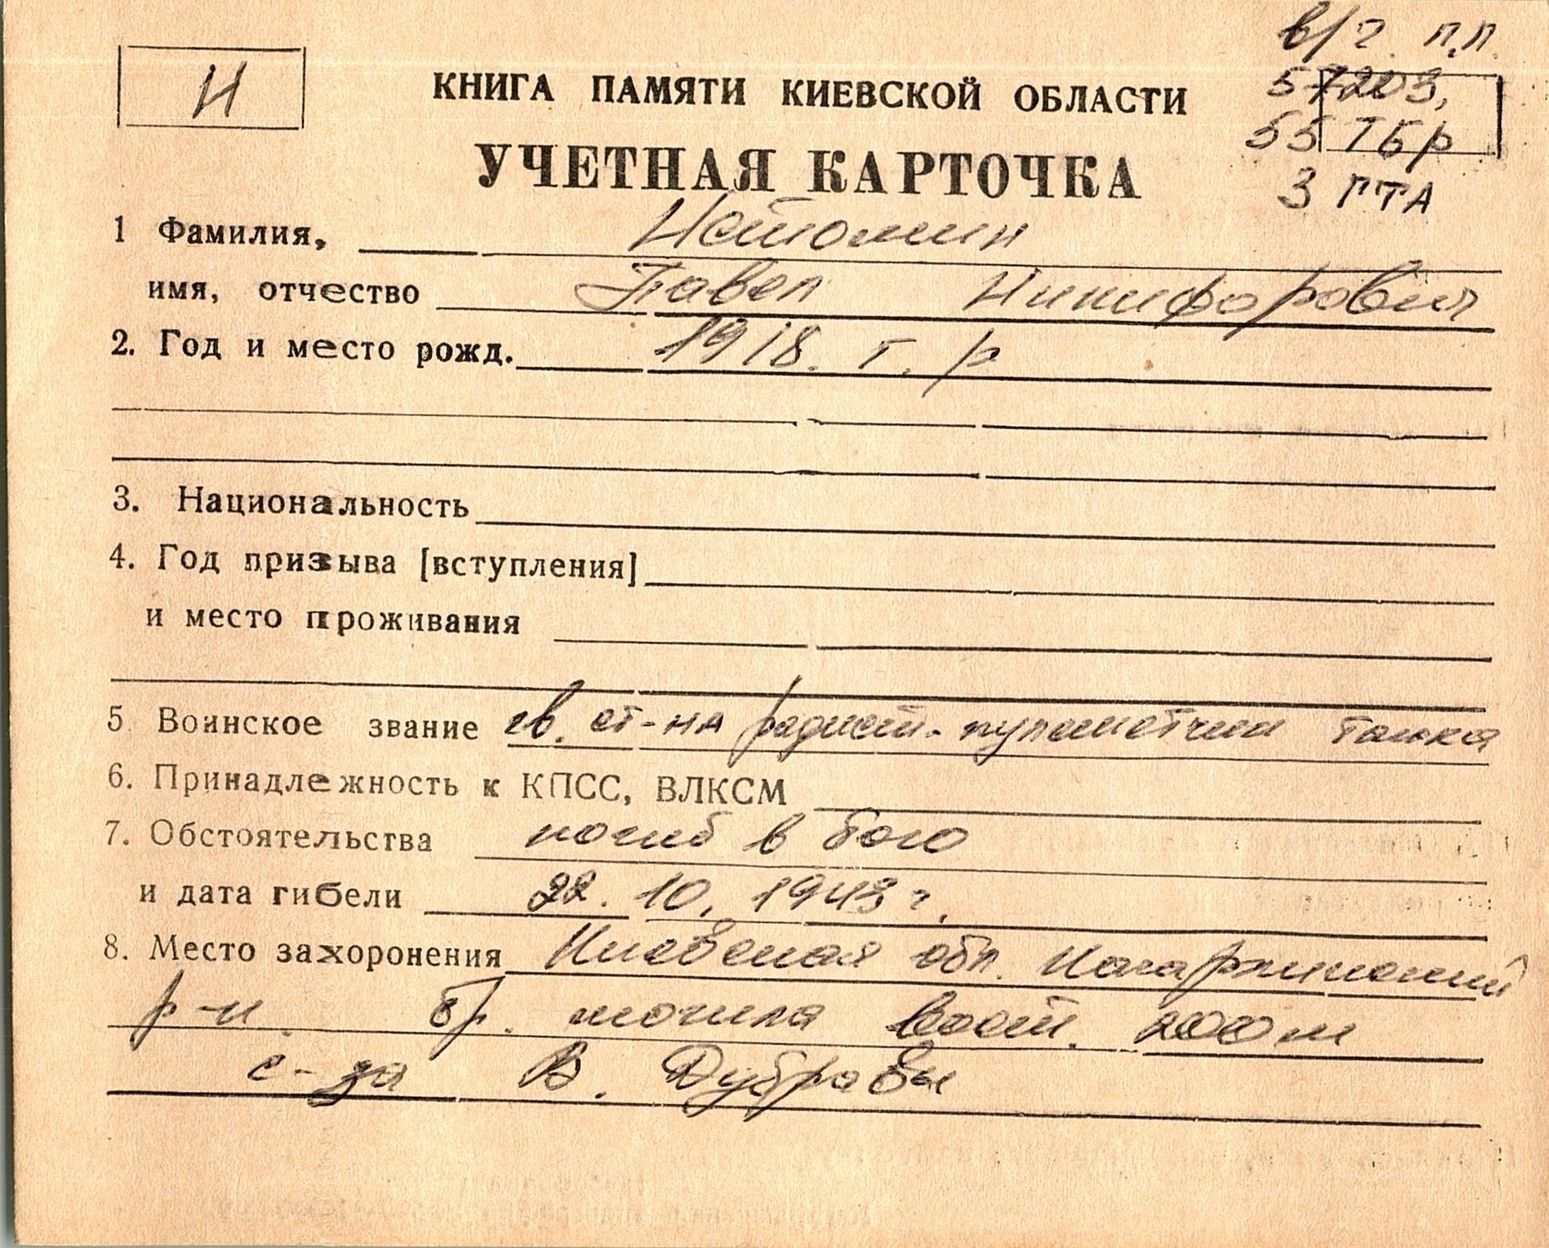 И
в/ч п.п.
57203,
55 ТБр
3 ГТА
КНИГА ПАМЯТИ КИЕВСКОЙ ОБЛАСТИ
УЧЕТНАЯ КАРТОЧКА
1 Фамилия,
имя, отчество Павел Никифорович
2. Год и место рожд. 1918. г. р
3. Национальность
4. Год призыва [вступления]
и место проживания
5 Воинское звание гв. ст-на радист-пулеметчик танка
6. Принадлежность к КПСС, ВЛКСМ
7. Обстоятельства погиб в бою
и дата гибели 22. 10. 1943 г.
8. Место захоронения Киевская обл. Кагарлыкский
р-н. бр. могила вост. 200 м
с-за В. Дубравы